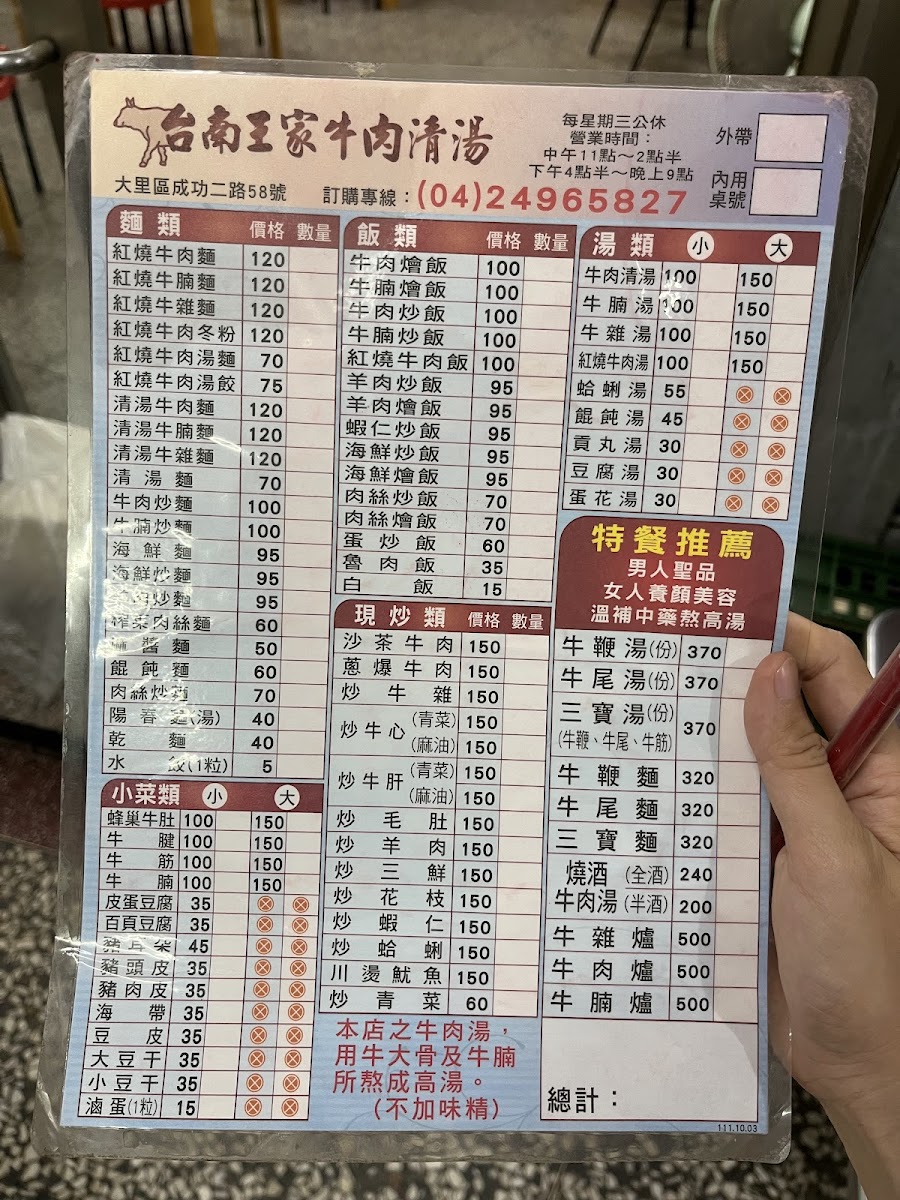 台南王家牛肉清湯
每星期三公休
營業時間：
中午11點～2點半
下午4點半～晚上9點
外帶
內用
桌號
大里區成功二路58號 訂購專線：(04)24965827
麵類 價格 數量
紅燒牛肉麵 120
紅燒牛腩麵 120
紅燒牛雜麵 120
紅燒牛肉冬粉 120
紅燒牛肉湯麵 70
紅燒牛肉湯餃 75
清湯牛肉麵 120
清湯牛腩麵 120
清湯牛雜麵 120
清湯麵 70
牛肉炒麵 100
牛腩炒麵 100
海鮮麵 95
海鮮炒麵 95
肉炒麵 95
榨菜肉絲麵 60
麻醬麵 50
餛飩麵 60
肉絲炒麵 70
陽春麵(湯) 40
乾麵 40
水餃(1粒) 5
小菜類 小 大
蜂巢牛肚 100 150
牛腱 100 150
牛筋 100 150
牛腩 100 150
皮蛋豆腐 35
百頁豆腐 35
豬耳朵 45
豬頭皮 35
豬肉皮 35
海帶 35
豆皮 35
大豆干 35
小豆干 35
滷蛋(1粒) 15
飯類 價格 數量
牛肉燴飯 100
牛腩燴飯 100
牛肉炒飯 100
牛腩炒飯 100
紅燒牛肉飯 100
羊肉炒飯 95
羊肉燴飯 95
蝦仁炒飯 95
海鮮炒飯 95
海鮮燴飯 95
肉絲炒飯 70
肉絲燴飯 70
蛋炒飯 60
魯肉飯 35
白飯 15
現炒類 價格 數量
沙茶牛肉 150
蔥爆牛肉 150
炒牛雜 150
炒牛心 (青菜) 150
(麻油) 150
炒牛肝 (青菜) 150
(麻油) 150
炒毛肚 150
炒羊肉 150
炒三鮮 150
炒花枝 150
炒蝦仁 150
炒蛤蜊 150
川燙魷魚 150
炒青菜 60
本店之牛肉湯，
用牛大骨及牛腩
所熬成高湯。
(不加味精)
湯類 小 大
牛肉清湯 100 150
牛腩湯 100 150
牛雜湯 100 150
紅燒牛肉湯 100 150
蛤蜊湯 55
餛飩湯 45
貢丸湯 30
豆腐湯 30
蛋花湯 30
特餐推薦
男人聖品
女人養顏美容
溫補中藥熬高湯
牛鞭湯(份) 370
牛尾湯(份) 370
三寶湯(份) 370
(牛鞭、牛尾、牛筋)
牛鞭麵 320
牛尾麵 320
三寶麵 320
燒酒 (全酒) 240
牛肉湯 (半酒) 200
牛雜爐 500
牛肉爐 500
牛腩爐 500
總計：
111.10.03